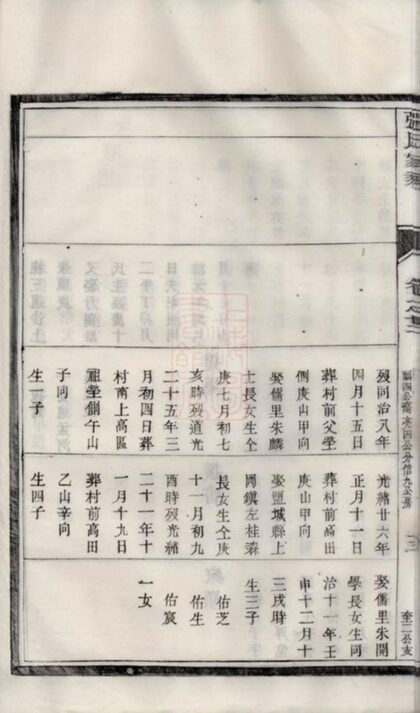 張氏宗譜
奎二公支
歿同治八年
四月十五日
葬村前父塋
側庚山甲向
娶儒里朱麟
士長女生仝
庚七月初七
亥時歿道光
二十五年三
月初四日葬
村南上高區
祖塋側午山
子向
生一子
光緒廿六年
正月十一日
葬村前高田
庚山甲向
娶鹽城縣上
岡鎮左桂森
長女生仝庚
十一月初九
酉時歿光緒
二十一年十
一月十九日
葬村前高田
乙山辛向
生四子
娶儒里朱開
學長女生同
治十一年壬
申十二月十
三戌時
生三子
佑芝
佑生
佑宸
一女